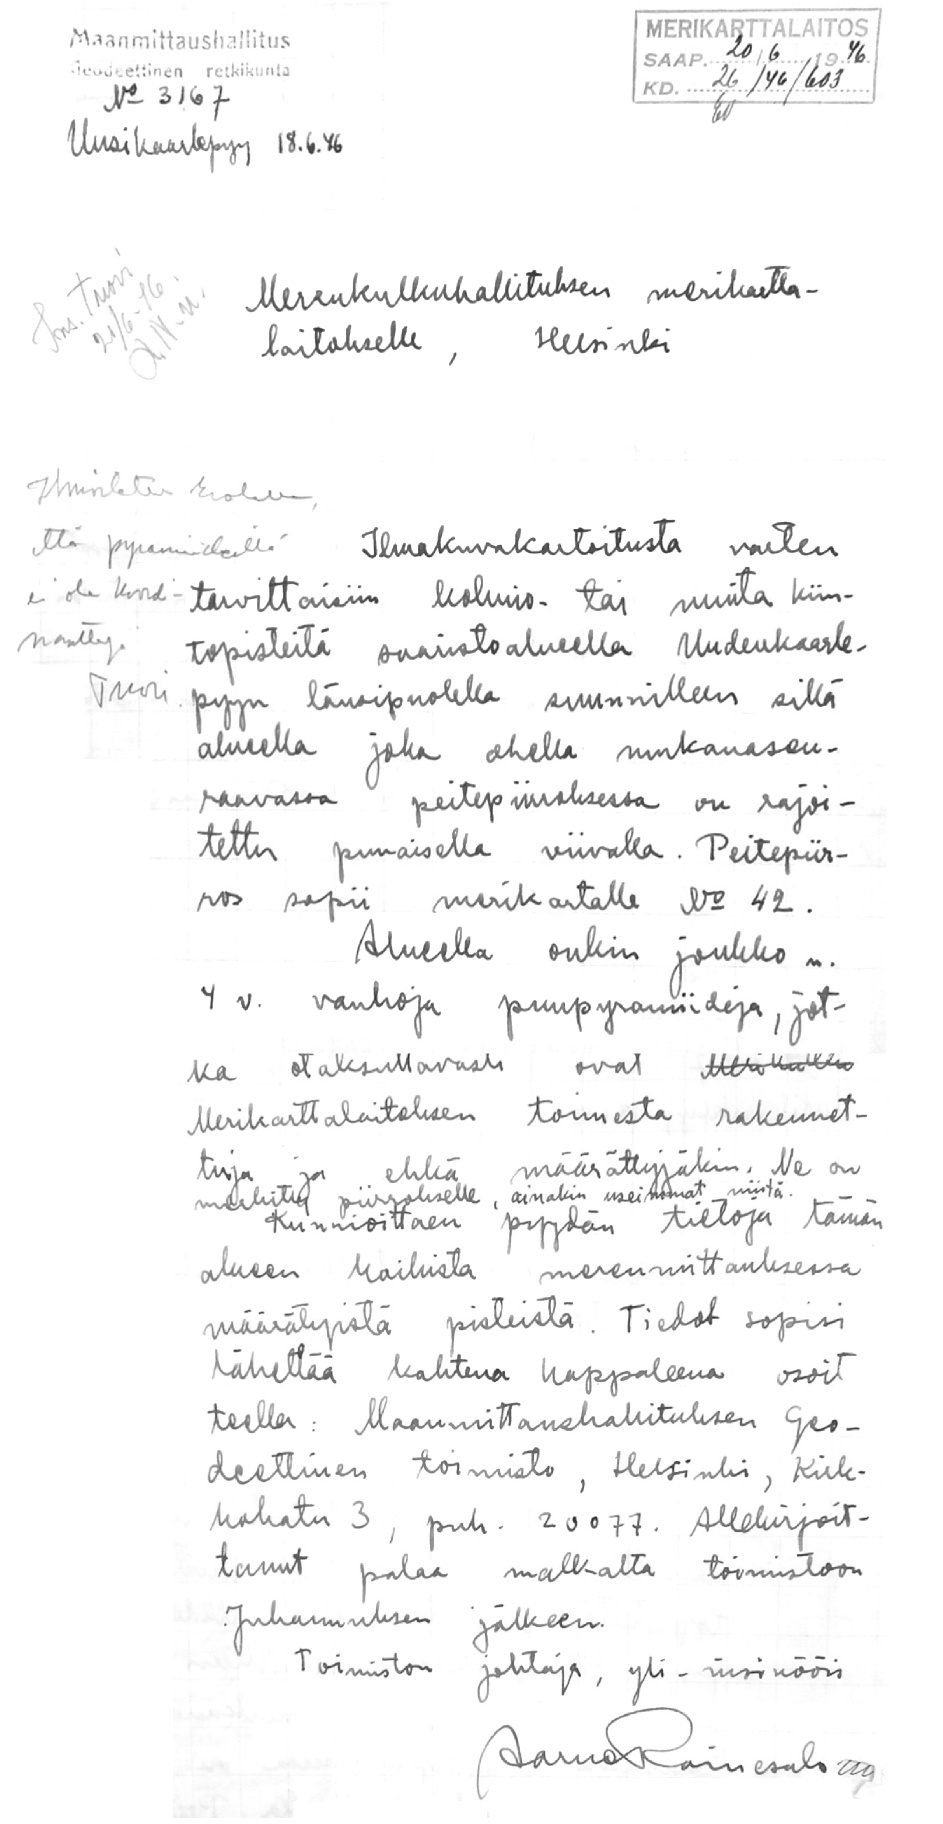 Maanmittaushallitus
Geodeettinen retkikunta
No 3167
Uusikaarlepyy 18.6.46
MERIKARTTALAITOS
SAAP. 20/6 1946
KD. 26/46/603
Ins. Tuori
21/6-46.
Merenkulkuhallituksen merikartta-
laitokselle, Helsinki
että pyramideillä
ei ole koordi-
naatteja.
Tuori.
Ilmakuvakartoitusta varten
tarvittaisiin kolmio- tai muita kiin-
topisteitä saaristoalueella Uudenkaarle-
pyyn länsipuolella suunnilleen sillä
alueella joka ohella mukanaseu-
raavassa peitepiirroksessa on rajoi-
tettu punaisella viivalla. Peitepiir-
ros sopii merikartalle No 42.
Alueella onkin joukko n.
4 v. vanhoja puupyramiideja, jot-
ka otaksuttavasti ovat
Merikarttalaitoksen toimesta rakennet-
tuja ja ehkä määrättyjäkin. Ne on
merkitty piirrokselle, ainakin useimmat niistä.
Kunnioittaen pyydän tietoja tämän
alueen kaikista merenmittauksessa
määrätyistä pisteistä. Tiedot sopisi
lähettää kahtena kappaleena osoit
teella: Maanmittaushallituksen Geo-
deettinen toimisto, Helsinki, Kirk-
kokatu 3, puh. 20077. Allekirjoit-
tanut palaa matkalta toimistoon
Juhannuksen jälkeen.
Toimiston johtaja, yli-insinööri
Aarne Rainesalo